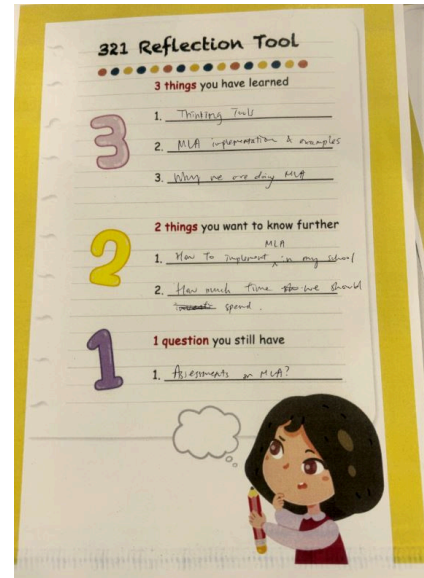 321 Reflection Tool
3
3 things you have learned
1. Thinking Tools
2. MLA implementation & examples
3. Why we are doing MLA
2
2 things you want to know further
MLA
1. How to implement ^ in my school
2. How much time we should
spend.
1
1 question you still have
1. Assessments in MLA?